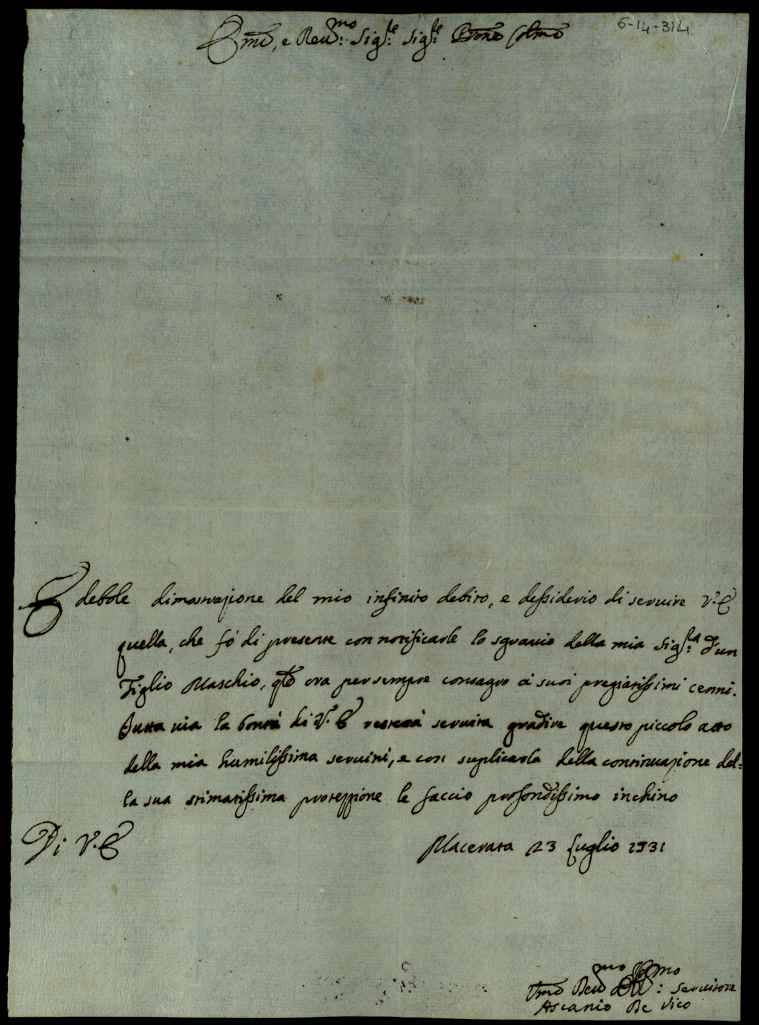 6-14-314
Em̃o, e Reu:mo Sig:re Sig:re Prõne Colm̃o
E debole dimostrazione del mio infinito debito, e dessiderio di seruire V.E
quella, che fò di presente con notificarle lo sgrauio della mia Sig:ra d'un
Figlio Maschio, qto ora per sempre consagro ai suoi pregiatissimi cenni.
Tutta uia la bontà di V.E resterà seruita gradire questo piccolo atto
della mia humilissima seruitù, e con suplicarla della continuazione del-
la sua stimatissima protezzione le faccio profondissimo inchino
Di V.E
Macerata 23 Luglio 1731
Um̃o Deu:mo Seruitore
Ascanio De Vico